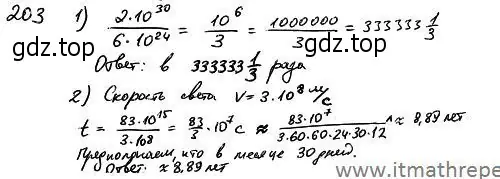 203 1) 2·10^30 / 6·10^24 = 10^6 / 3 = 1000000 / 3 = 333333 1/3
gdz.top gdz.top
Ответ: в 333333 1/3 раза
2) Скорость света V = 3·10^8 м/с
t = 83·10^15 / 3·10^8 = 83/3 · 10^7 с ≈ 83·10^7 / 3·60·60·24·30·12 ≈ 8,89 лет
Предполагаем, что в месяце 30 дней.
Ответ: ≈ 8,89 лет
www.itmathrepe